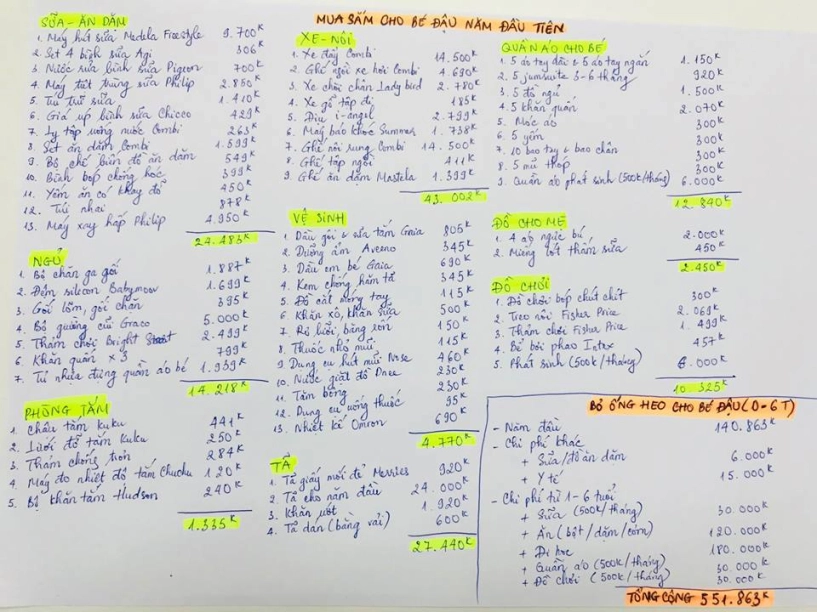 MUA SẮM CHO BÉ ĐẬU NĂM ĐẦU TIÊN
SỮA - ĂN DẶM
1. Máy hút sữa Medela Freestyle 9.700K
2. Set 4 bình sữa Agi 306K
3. Nước rửa bình sữa Pigeon 700K
4. Máy tiệt trùng sữa Philip 2.850K
5. Túi trữ sữa 1.410K
6. Giá úp bình sữa Chicco 429K
7. Ly tập uống nước Combi 263K
8. Set ăn dặm Combi 1.599K
9. Bộ chế biến đồ ăn dặm 549K
10. Bình bóp chống hóc 399K
11. Yếm ăn có khay đổ 450K
12. Túi nhai 878K
13. Máy xay hấp Philip 4.950K
24.483K
NGỦ
1. Bộ chăn ga gối 1.887K
2. Đệm silicon Babymoov 1.699K
3. Gối lõm, gối chăn 395K
4. Bộ giường cũi Graco 5.000K
5. Thảm chơi Bright 2.499K
6. Khăn quấn x 3 799K
7. Tủ nhựa đựng quần áo bé 1.939K
14.218K
PHÒNG TẮM
1. Chậu tắm kuku 441K
2. Lưới đỡ tắm Kuku 250K
3. Thảm chống trơn 284K
4. Máy đo nhiệt độ tắm Chuchu 120K
5. Bộ khăn tắm Hudson 240K
1.335K
XE - NÔI
1. Xe đẩy Combi 14.500K
2. Ghế ngồi xe hơi Combi 4.690K
3. Xe chòi chân Lady bird 2.780K
4. Xe gỗ tập đi 185K
5. Địu i-angel 2.799K
6. Máy báo khóc Summer 1.738K
7. Ghế nôi rung Combi 14.500K
8. Ghế tập ngồi 411K
9. Ghế ăn dặm Mastela 1.399K
43.002K
VỆ SINH
1. Dầu gội & sữa tắm Gaia 805K
2. Dưỡng ẩm Aveeno 345K
3. Dầu em bé Gaia 690K
4. Kem chống hăm tã 345K
5. Đồ cắt móng tay 115K
6. Khăn xô, khăn sữa 500K
7. Rơ lưỡi, băng rốn 150K
8. Thuốc nhỏ mũi 115K
9. Dụng cụ hút mũi Nose 460K
10. Nước giặt đồ Dnee 230K
11. Tăm bông 230K
12. Dụng cụ uống thuốc 95K
13. Nhiệt kế Omron 690K
4.770K
TÃ
1. Tã giấy mới đẻ Merries 920K
2. Tã cho năm đầu 24.000K
3. Khăn ướt 1.920K
4. Tã dán (bằng vải) 600K
27.440K
QUẦN ÁO CHO BÉ
1. 5 áo tay dài & 5 áo tay ngắn 1.150K
2. 5 jumsuits 3-6 tháng 920K
3. 5 đồ ngủ 1.500K
4. 5 khăn quấn 2.070K
5. Móc áo 300K
6. 5 yếm 300K
7. 10 bao tay & bao chân 300K
8. 5 mũ thóp 300K
9. Quần áo phát sinh (500k/tháng) 6.000K
12.840K
ĐỒ CHO MẸ
1. 4 áo ngực bú 2.000K
2. Miếng lót thấm sữa 450K
2.450K
ĐỒ CHƠI
1. Đồ chơi bóp chút chít 300K
2. Treo nôi Fisher Price 2.069K
3. Thảm chơi Fisher Price 1.499K
4. Bể bơi phao Intex 457K
5. Phát sinh (500k/tháng) 6.000K
10.325K
BỎ ỐNG HEO CHO BÉ ĐẬU (0-6T)
- Năm đầu 140.863K
- Chi phí khác
+ Sữa/đồ ăn dặm 6.000K
+ Y tế 15.000K
- Chi phí từ 1-6 tuổi
+ Sữa (500k/tháng) 30.000K
+ Ăn (bột/dặm/cơm) 120.000K
+ Đi học 180.000K
+ Quần áo (500k/tháng) 30.000K
+ Đồ chơi (500k/tháng) 30.000K
TỔNG CỘNG 551.863K